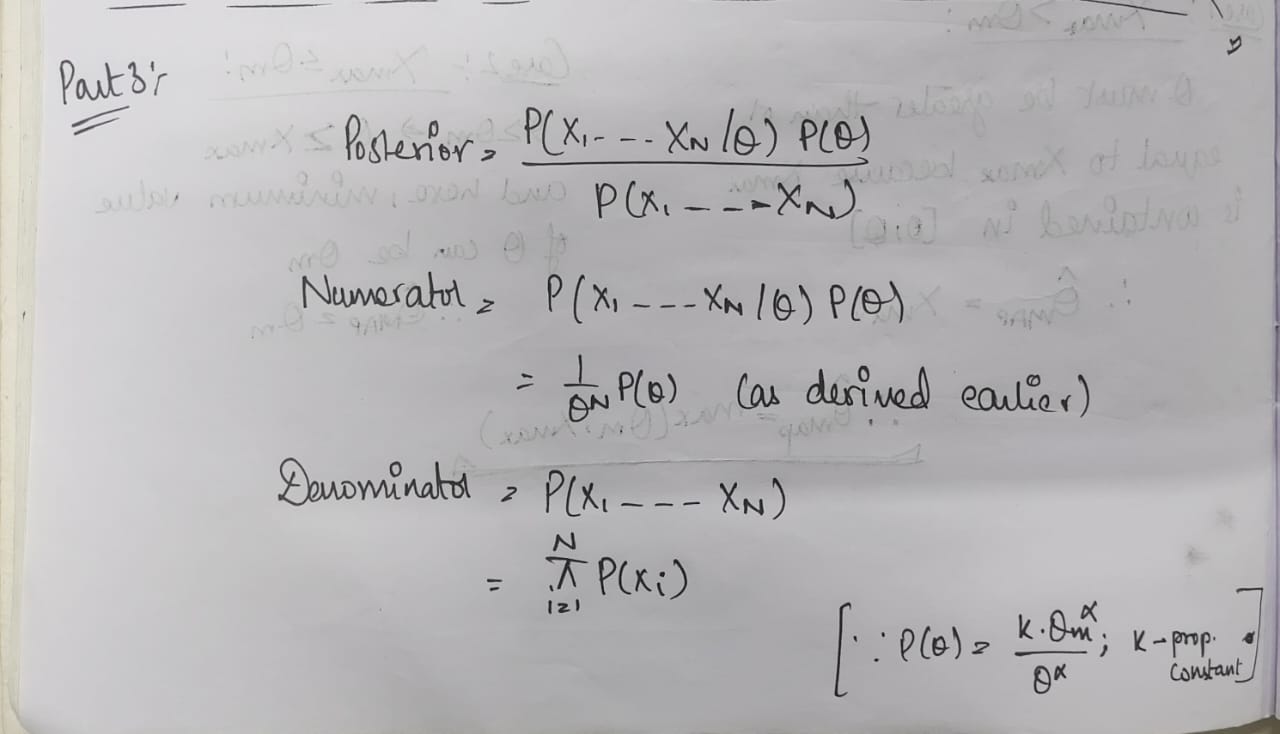 Part 3:
Posterior = P(X1 - - - XN / θ) P(θ)
P(X1 - - - XN)
Numerator = P(X1 - - - XN / θ) P(θ)
= 1/θN P(θ) (as derived earlier)
Denominator = P(X1 - - - XN)
= N π i=1 P(Xi)
[∵ P(θ) = K·θm^α / θ^α ; K - prop. constant]